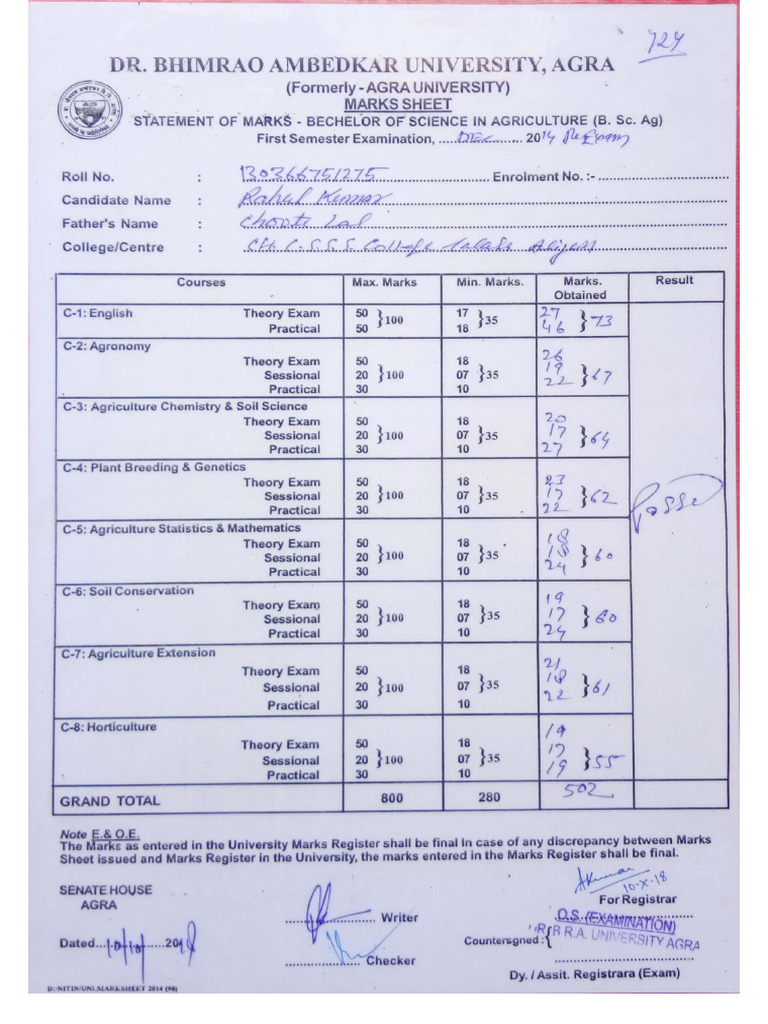 724
DR. BHIMRAO AMBEDKAR UNIVERSITY, AGRA
(Formerly - AGRA UNIVERSITY)
MARKS SHEET
STATEMENT OF MARKS - BECHELOR OF SCIENCE IN AGRICULTURE (B. Sc. Ag)
First Semester Examination, ..... DEC ........ 2014 ReExam
Roll No. : 130366751275 Enrolment No. :-
Candidate Name : Rahul Kumar
Father's Name : Choote Lal
College/Centre : CH. C.S.S.S. College
Courses Max. Marks Min. Marks. Marks. Obtained Result
C-1: English Theory Exam 50 }100 17 }35 27 }73
Practical 50 18 46
C-2: Agronomy
Theory Exam 50 18 26
Sessional 20 }100 07 }35 19 }67
Practical 30 10 22
C-3: Agriculture Chemistry & Soil Science
Theory Exam 50 18 20
Sessional 20 }100 07 }35 17 }64
Practical 30 10 27
C-4: Plant Breeding & Genetics
Theory Exam 50 18 23
Sessional 20 }100 07 }35 17 }62
Practical 30 10 22
C-5: Agriculture Statistics & Mathematics
Theory Exam 50 18 18
Sessional 20 }100 07 }35 18 }60
Practical 30 10 24
C-6: Soil Conservation
Theory Exam 50 18 19
Sessional 20 }100 07 }35 17 }60
Practical 30 10 24
C-7: Agriculture Extension
Theory Exam 50 18 21
Sessional 20 }100 07 }35 18 }61
Practical 30 10 22
C-8: Horticulture
Theory Exam 50 18 19
Sessional 20 }100 07 }35 17 }55
Practical 30 10 19
GRAND TOTAL 800 280 502
Note E.& O.E.
The Marks as entered in the University Marks Register shall be final In case of any discrepancy between Marks
Sheet issued and Marks Register in the University, the marks entered in the Marks Register shall be final.
SENATE HOUSE
AGRA
10-X-18
For Registrar
Writer
O.S. (EXAMINATION)
Dated... 10/10 ......2018
Countersgned :{ B.R.A. UNIVERSITY AGRA
Checker
Dy. / Assit. Registrara (Exam)
D:/NITIN/UNI.MARKSHEET 2014 (90)